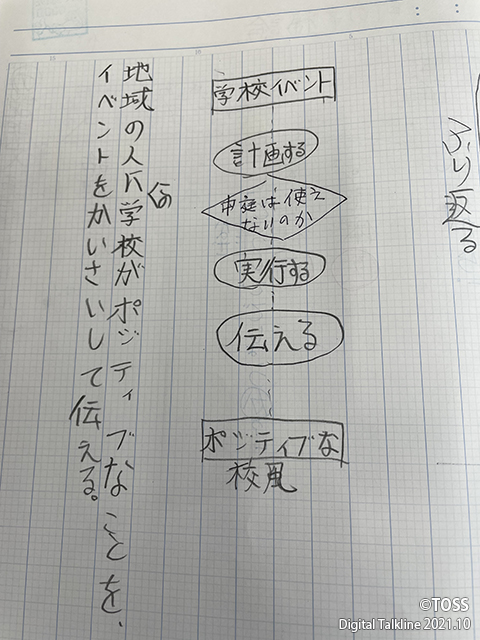 ふり返る
学校イベント
計画する
中庭は使え
ないのか
実行する
伝える
ポジティブな
校風
地域の人に学校がポジティブなことを、
イベントをかいさいして伝える。
©TOSS
Digital Talkline 2021.10